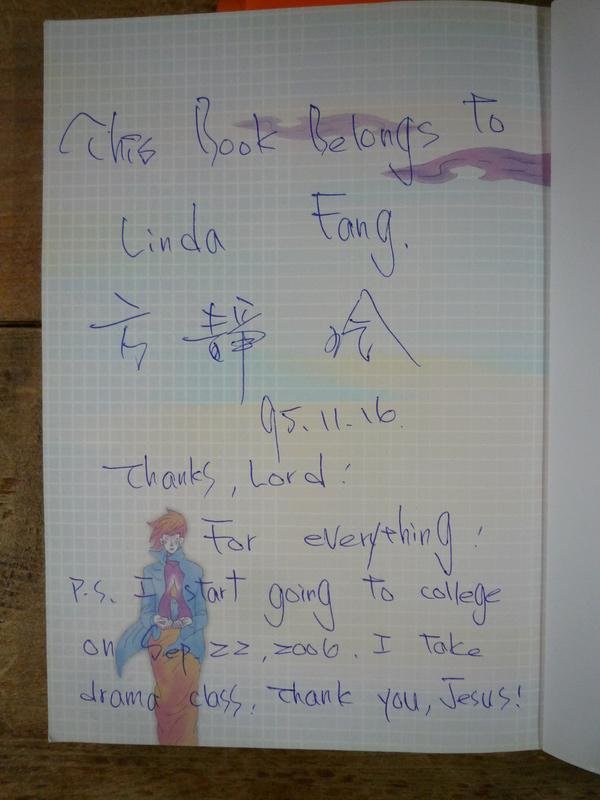 This Book Belongs To
Linda Fang.
方靜吟
95.11.16.
Thanks, Lord!
For everything!
P.S. I start going to college
on Sep 22, 2006. I take
drama class. Thank you, Jesus!